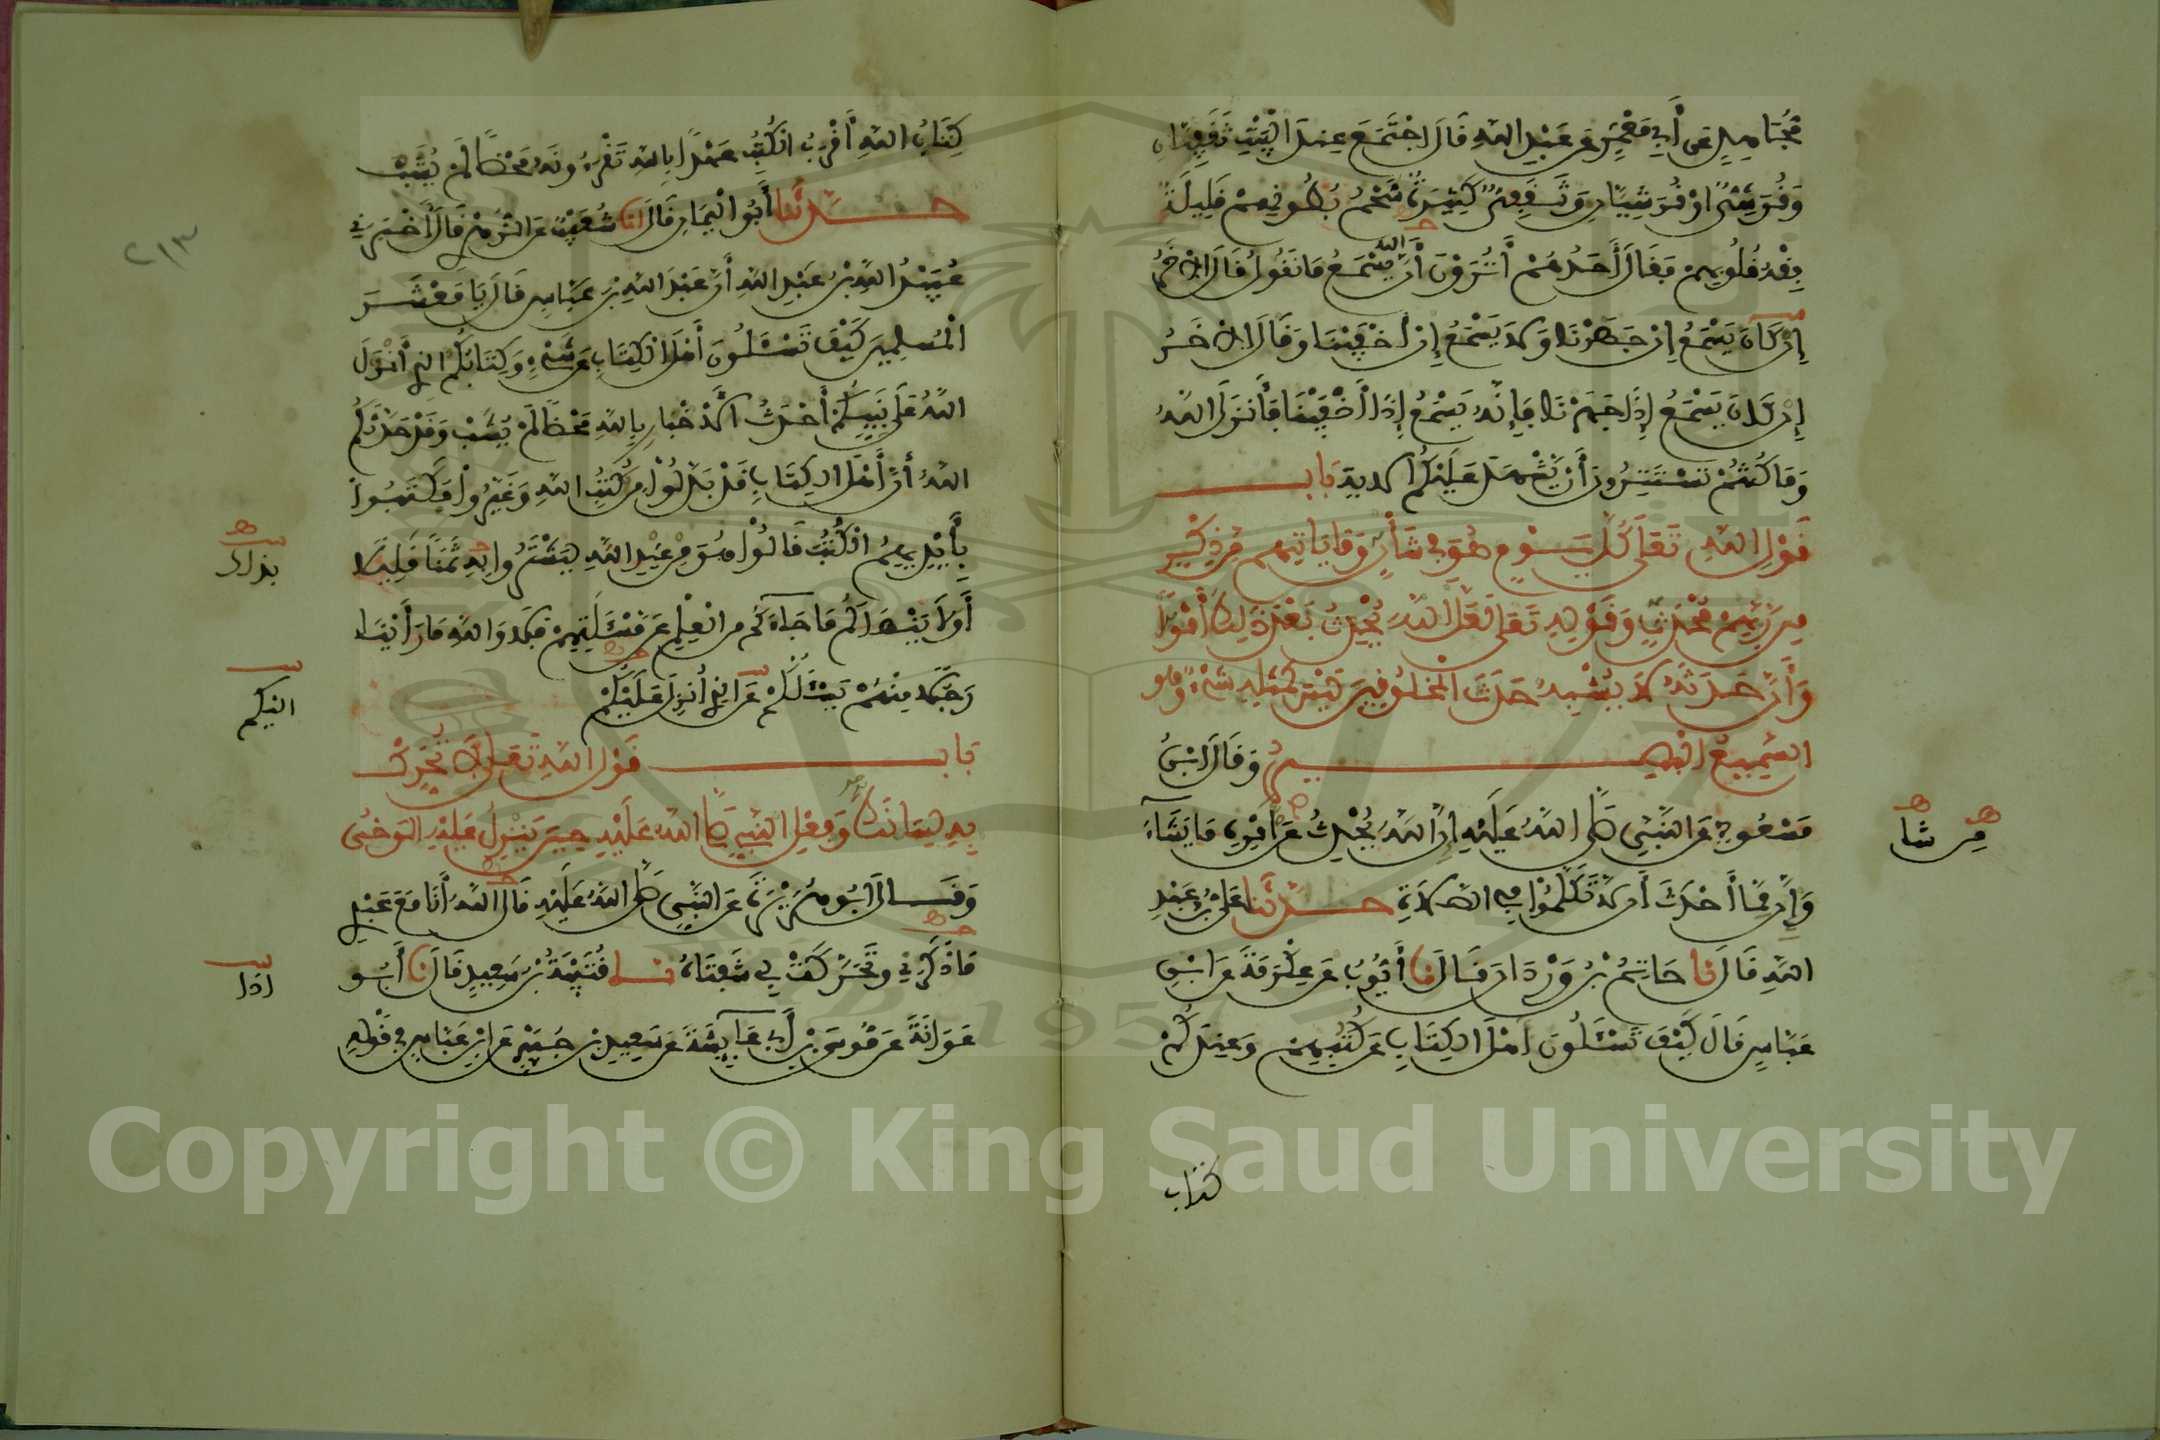 مُجَاهِدٍ عَن أَبِي مَعْمَرٍ عَن عَبْدِ اللهِ قَالَ اجْتَمَعَ عِندَ الْبَيْتِ ثَقَفِيَّانِ
وَقُرَشِيٌّ اوْ قُرَشِيَّانِ وَثَقَفِيٌّ كَثِيرَةٌ شَحْمُ بُطُونِهِمْ قَلِيلَةٌ
فِقْهُ قُلُوبِهِمْ فَقَالَ أَحَدُهُمْ أَتَرَوْنَ أَنَّ اللهَ يَسْمَعُ مَا نَقُولُ قَالَ الآخَرُ
إِن كَانَ يَسْمَعُ إِنْ جَهَرْنَا وَلَا يَسْمَعُ إِنْ أَخْفَيْنَا وَقَالَ الآخَرُ
إِن كَانَ يَسْمَعُ إِذَا جَهَرْنَا فَإِنَّهُ يَسْمَعُ إِذَا أَخْفَيْنَا فَأَنزَلَ اللهُ
وَمَا كُنتُمْ تَسْتَتِرُونَ أَنْ يَّشْهَدَ عَلَيْكُمُ الآية بَاب
قَوْلِ اللهِ تَعَلَى كُلَّ يَوْمٍ هُوَ فِي شَأْنٍ وَمَا يَاتِيهِم مِّن ذِكْرٍ
مِن رَّبِّهِمْ مُّحْدَثٍ وَقَوْلِهِ تَعَلَى لَعَلَّ اللهَ يُحْدِثُ بَعْدَ ذَلِكَ أَمْراً
وَأَنَّ حَدَثَهُ لَا يُشْبِهُ حَدَثَ الْمَخْلُوقِينَ لَيْسَ كَمِثْلِهِ شَيْءٌ وَهُو
السَّمِيعُ الْبَصِيرُ وَقَالَ ابْنُ
مَسْعُودٍ عَنِ النَّبِيِّ صَلَّى اللهُ عَلَيْهِ إِنَّ اللهَ يُحْدِثُ مِنْ أَمْرِهِ مَا يَشَاءُ
وَإِنَّ مِمَّا أَحْدَثَ أَن لَّا تَكَلَّمُوا فِي الصَّلَاةِ حَدَّثَنَا عَلِيُّ بْنُ عَبْدِ
اللهِ قَالَ نا حَاتِمُ بْنُ وَرْدَانَ قَالَ نا أَيُّوبُ عَن عِكْرِمَةَ عَنِ ابْنِ
عَبَّاسٍ قَالَ كَيْفَ تَسْئَلُونَ اهْلَ الْكِتَابِ عَن كُتُبِهِمْ وَعِندَكُمْ
كتاب
مِن شا
كِتَابُ اللهِ أَقْرَبُ الْكُتُبِ عَهْداً بِاللهِ تَقْرَءُونَهُ مَحْضاً لَمْ يُشَبْ
حَدَّثَنَا أَبُو الْيَمَانِ قَالَ انا شُعَيْبٌ عَنِ الزُّهْرِيِّ قَالَ أَخْبَرَنِي
عُبَيْدُ اللهِ بْنُ عَبْدِ اللهِ أَنَّ عَبْدَ اللهِ بْنَ عَبَّاسٍ قَالَ يَا مَعْشَرَ
الْمُسْلِمِينَ كَيْفَ تَسْئَلُونَ أَهْلَ الْكِتَابِ عَن شَيْءٍ وَكِتَابُكُمُ الذِي أَنْزَلَ
اللهُ عَلَى نَبِيِّكُمْ أَحْدَثُ الْأَخْبَارِ بِاللهِ مَحْضاً لَمْ يُشَبْ وَقَدْ حَدَّثَكُمُ
اللهُ أَنَّ أَهْلَ الْكِتَابِ قَدْ بَدَّلُوا مِن كُتُبِ اللهِ وَغَيَّرُوا فَكَتَبُوا
بِأَيْدِيهِمُ الْكُتُبَ قَالُوا هُوَ مِنْ عِندِ اللهِ لِيَشْتَرُوا بِهِ ثَمَناً قَلِيلًا
أَوَلَا يَنْهَاكُم مَا جَاءَكُم مِنَ الْعِلْمِ عَن مَسْئَلَتِهِمْ فَلَا وَاللهِ مَا رَأَيْنَا
رَجُلًا مِنْهُمْ يَسْئَلُكُمْ عَنِ الذِي أُنزِلَ عَلَيْكُمْ
بَاب قَوْلِ اللهِ تَعَلَى لَا تُحَرِّكْ
بِهِ لِسَانَكَ وَفِعْلِ النَّبِيِّ صَلَّى اللهُ عَلَيْهِ حِينَ يَنْزِلُ عَلَيْهِ الْوَحْيُ
وَقَالَ أَبُو هُرَيْرَةَ عَنِ النَّبِيِّ صَلَّى اللهُ عَلَيْهِ قَالَ اللهُ أَنَا مَعَ عَبْدِي
مَا ذَكَرَنِي وَتَحَرَّكَتْ بِي شَفَتَاهُ نا قُتَيْبَةُ بْنُ سَعِيدٍ قَالَ نا أَبُو
عَوَانَةَ عَن مُوسَى بْنِ أَبِي عَائِشَةَ عَن سَعِيدِ بْنِ جُبَيْرٍ عَنِ ابْنِ عَبَّاسٍ فِي قَوْلِهِ
٢١٣
بذلك
اليكم
اذا
Copyright © King Saud University
1957